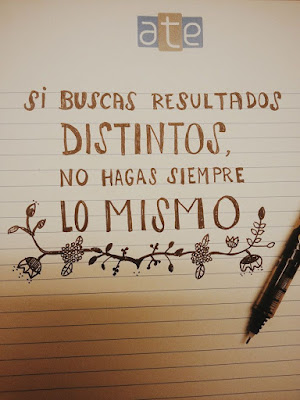 ate
Si BUSCAS RESULTADOS
DISTINTOS,
NO HAGAS SIEMPRE
LO MISMO